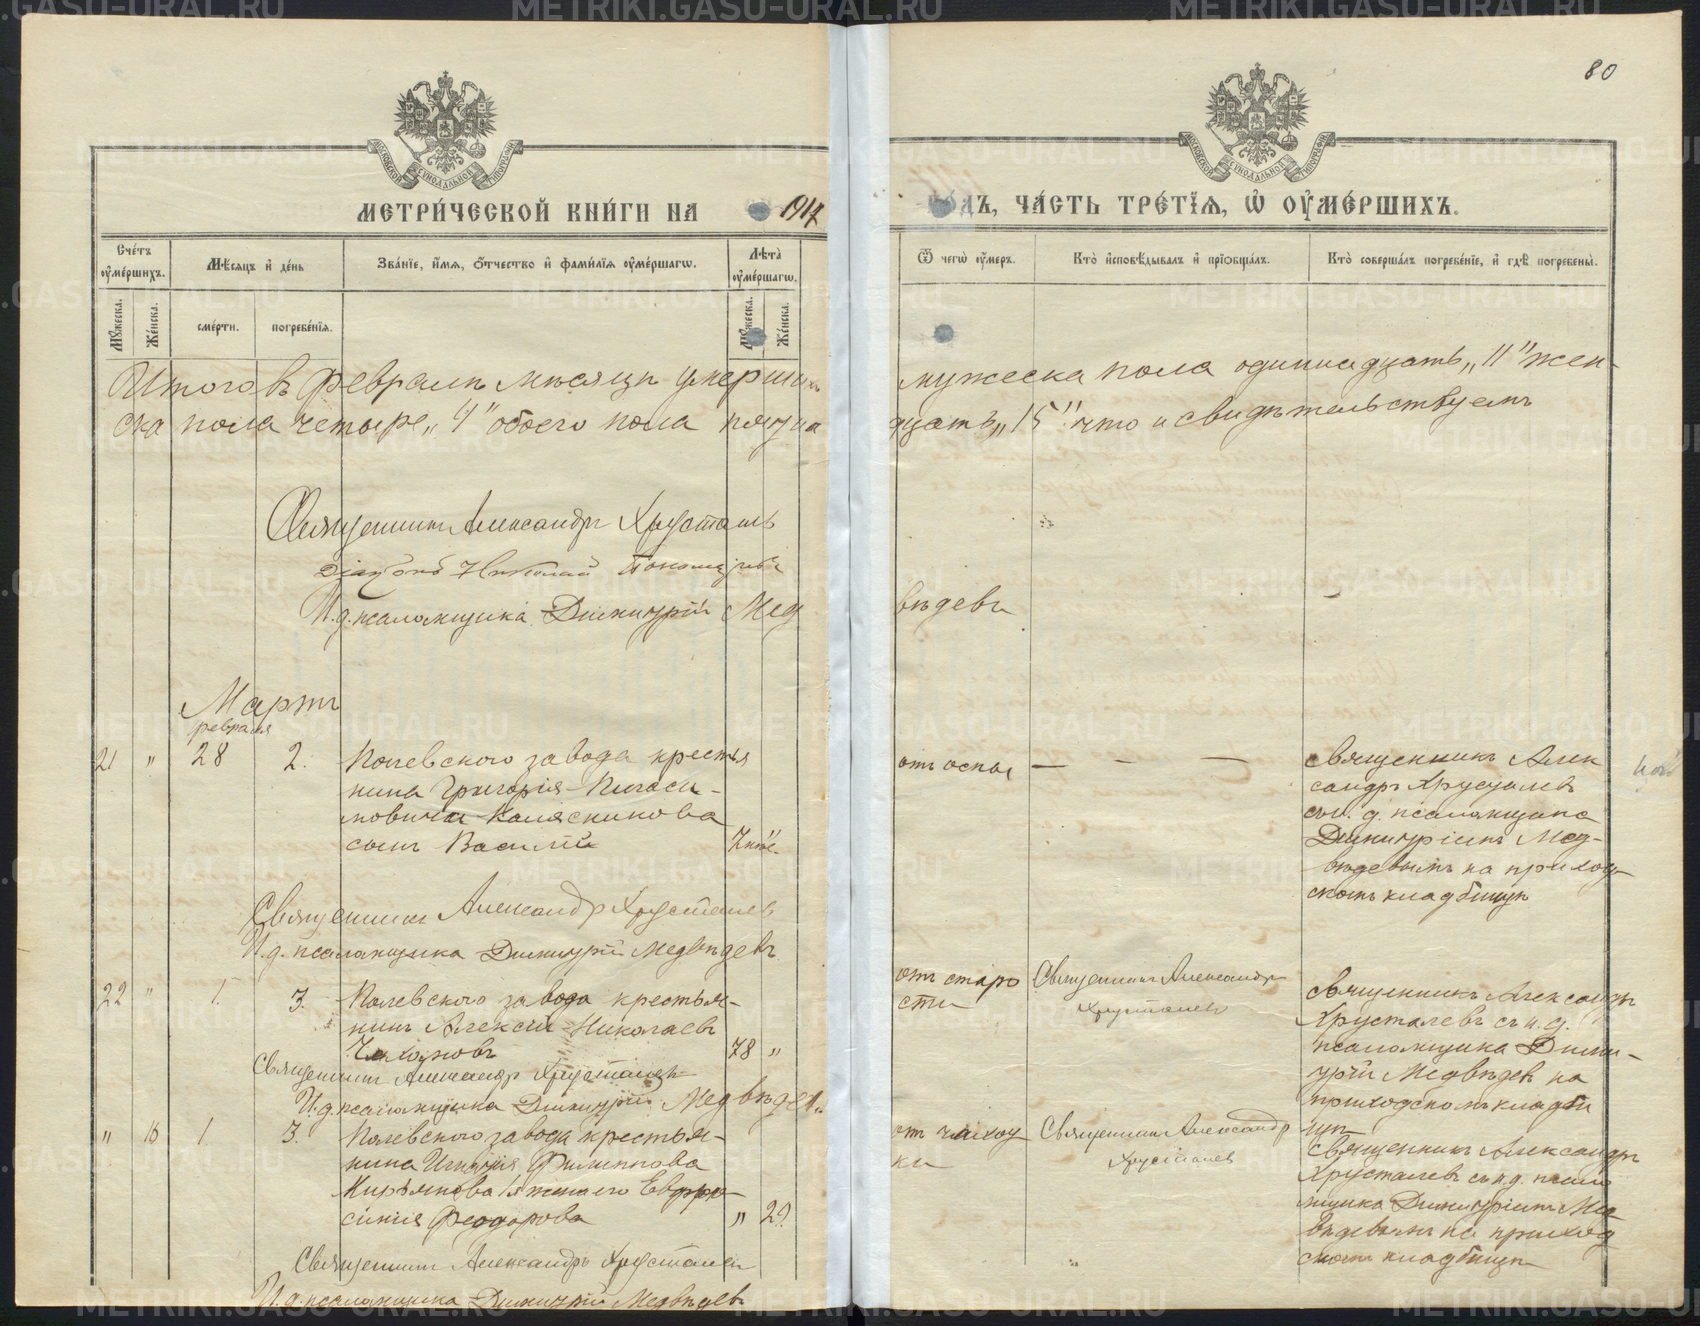 80
МЕТРИ́ЧЕСКОЙ КНИ́ГИ НА 1917
ГО́ДЪ, ЧА́СТЬ ТРЕ́ТЇѦ, Ѡ҆ ОУ҆МЕ́РШИХЪ.
Сче́тъ оу҆ме́ршихъ.
Мѣ́сѧцъ и҆ де́нь
Зва́нїе, и҆́мѧ, ѻ҆́тчество и҆ фами́лїѧ оу҆ме́ршагѡ.
Лѣ́та оу҆ме́ршагѡ.
Ѿ чегѡ̀ оу҆́меръ.
Кто̀ и҆сповѣ́дывалъ и҆ прїѻбща́лъ.
Кто̀ соверша́лъ погребе́нїе, и҆ гдѣ̀ погребены̀.
Мꙋ́жеска.
Же́нска.
сме́рти.
погребе́нїѧ.
Мꙋ́жеска.
Же́нска.
Итого въ февралѣ мѣсяцѣ умерши мужеска пола одиннадцать „11" жен-
ска пола четыре „4" обоего пола пятна дцать „15" что и свидѣтельствуемъ
Священникъ Александръ Хрусталевъ
Діаконъ Николай
И. д. псаломщика Димитрій Мед вѣдевъ
Мартъ
февраля
21 " 28 2. Полевского завода крестья
нина Григорія
Колясникова
сынъ Василій 7 нед.
от оспы — — —
Священникъ Алек
сандръ Хрусталевъ
съ и. д. псаломщика
Димитріемъ Мед-
вѣдевымъ на приход-
скомъ кладбищѣ
Священникъ Александръ Хрусталев
И. д. псаломщика Димитрій Медвѣдевъ
22 " 1. 3. Полевского завода крестья-
нинъ Алексѣй Николаевъ
78 "
отъ старо
сти
Священникъ Александръ
Хрусталевъ
Священникъ Александръ
Хрусталевъ съ и. д.
псаломщика Дими-
трій Медвѣдев на
приходскомъ кладби
щѣ
Священникъ Александръ Хрусталевъ
И. д. псаломщика Димитрій Медвѣдевъ
" 16 1. 3. Полевского завода крестья-
нина Игнатія Филиппова
жена его Евфро-
синія Феодорова " 29.
отъ чахот
ки
Священникъ Александръ
Хрусталев
Священникъ Александръ
Хрусталевъ съ и. д. псало
мщика Димитріемъ Мед
вѣдевымъ на приход
скомъ кладбищѣ
Священникъ Александръ Хрусталевъ
И. д. псаломщика Димитрій Медвѣдевъ
METRIKI.GASO-URAL.RU